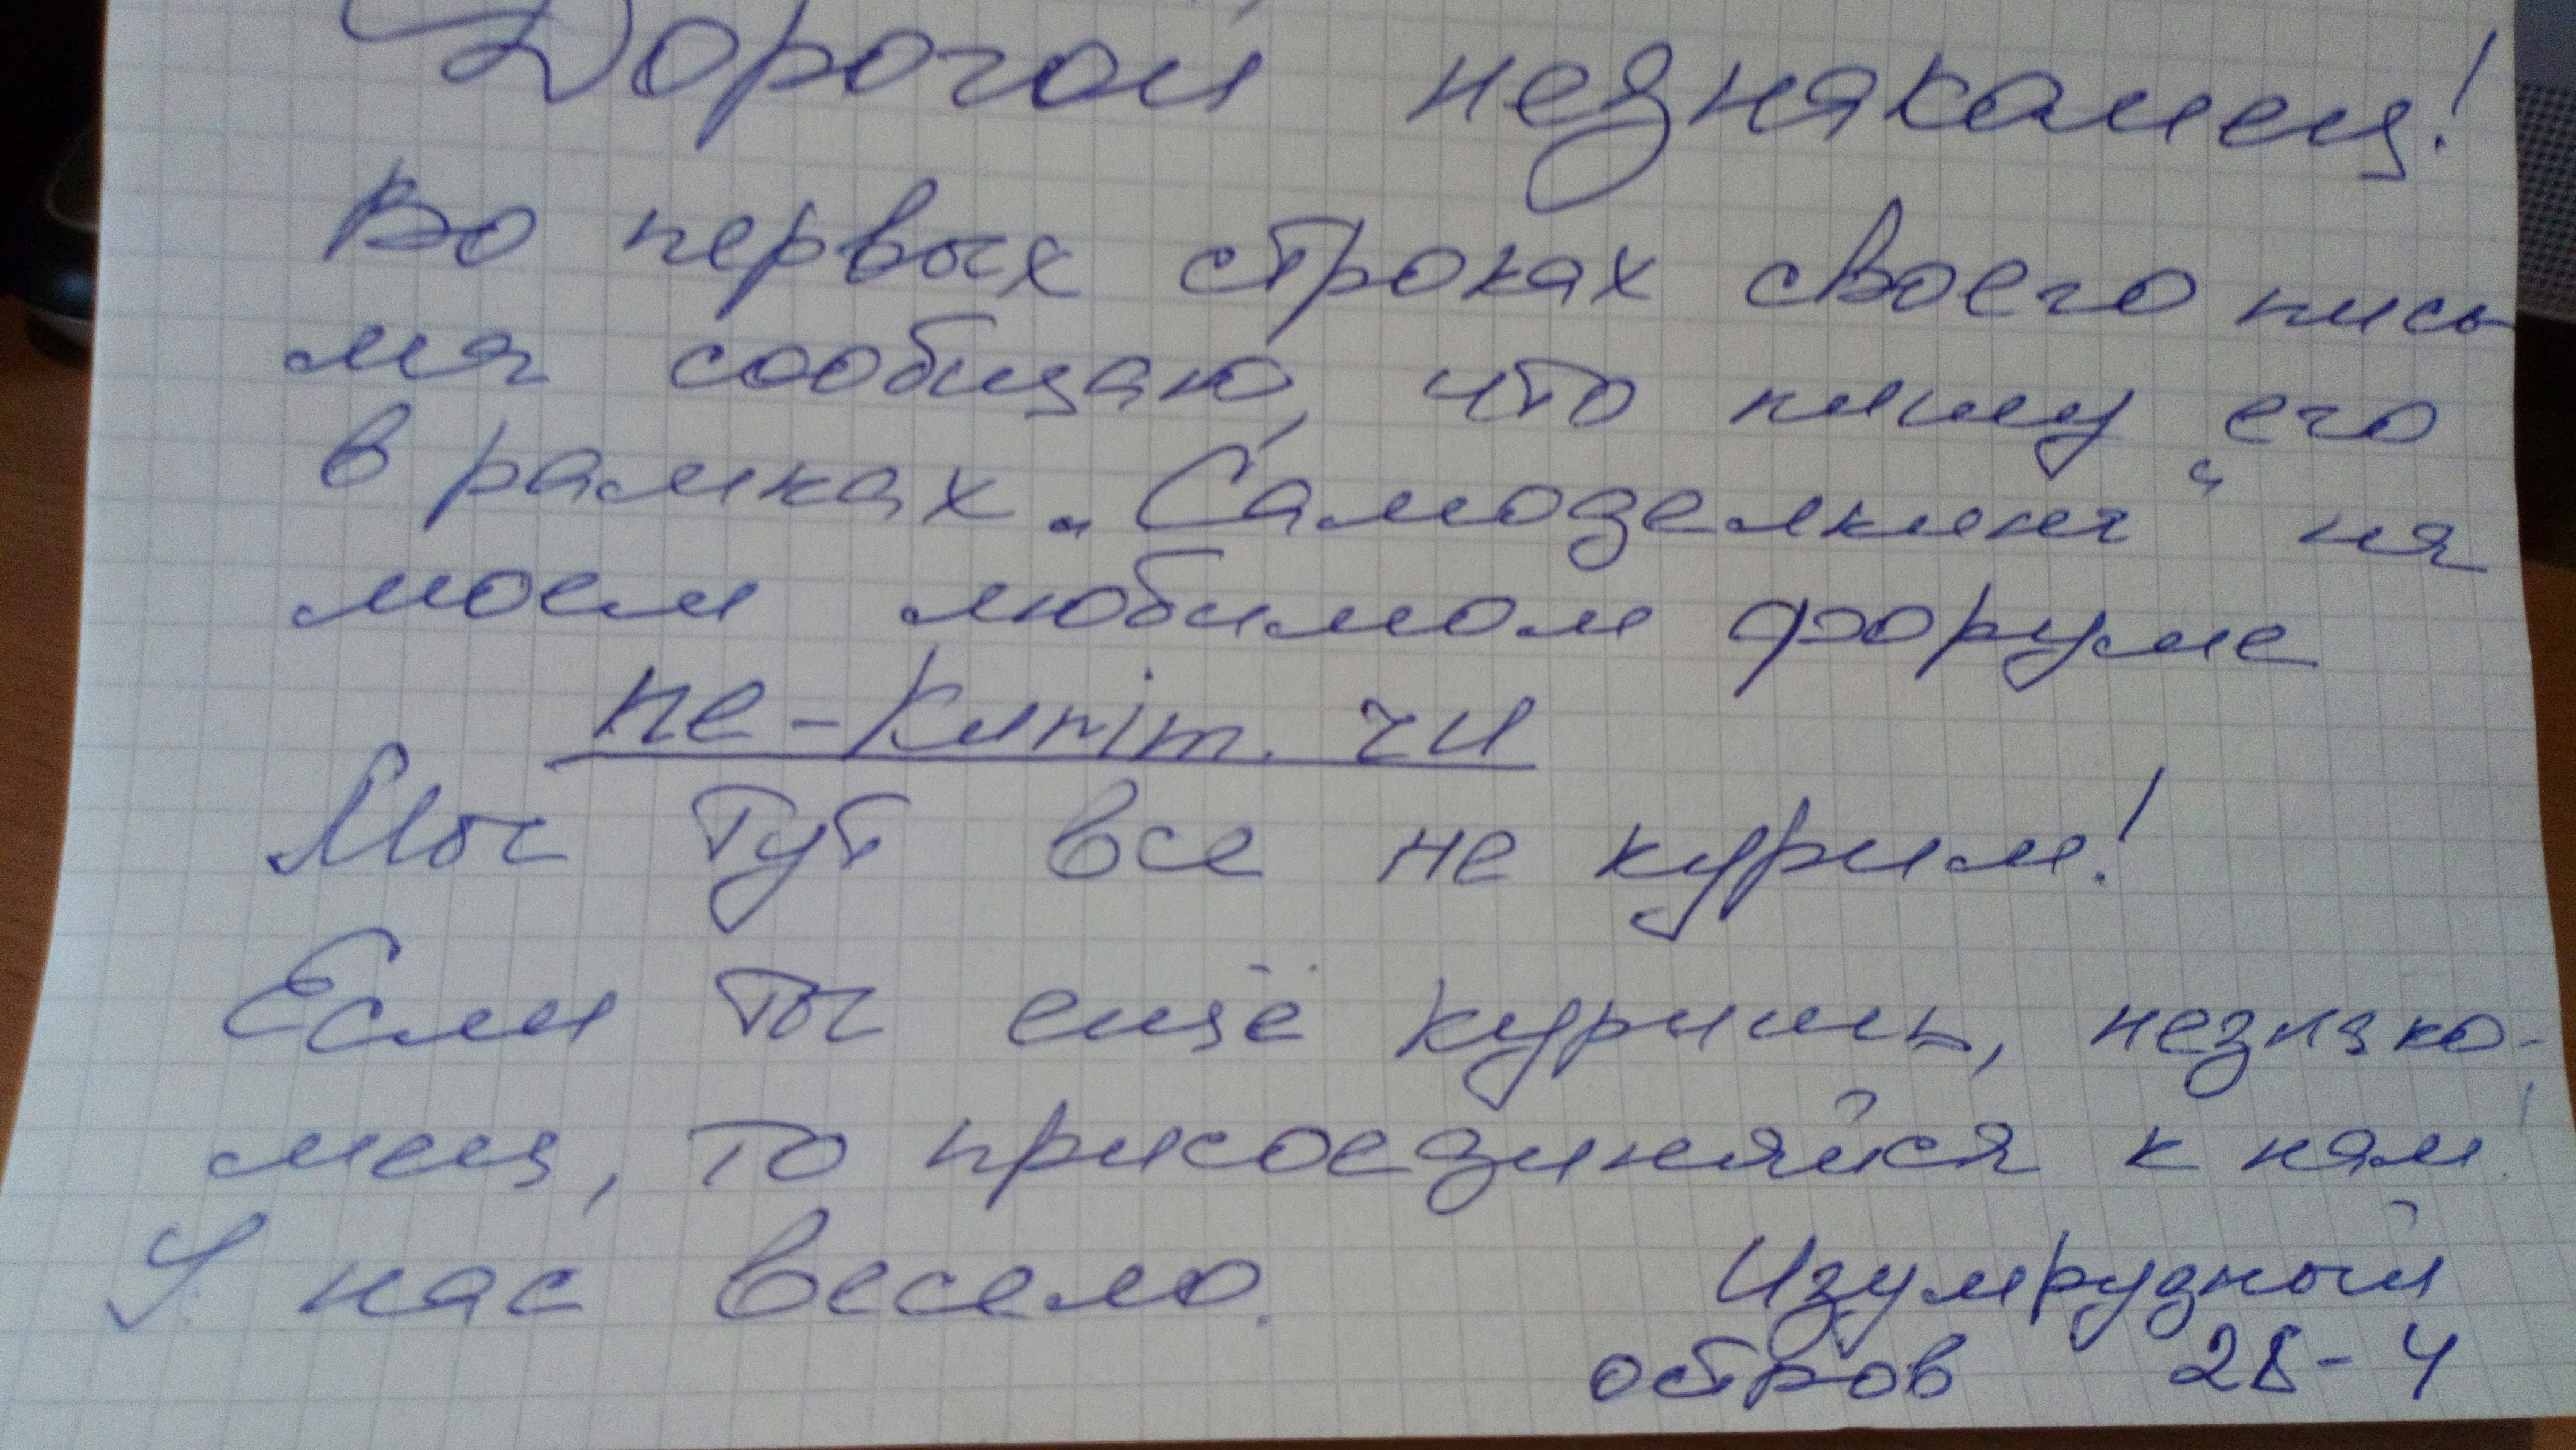 Дорогой незнакамец!
Во первых строках своего пись
ма сообщаю, что пишу его
в рамках „Самоделкина“ на
моем любимом форуме
ne-kurim. ru
Мы тут все не курим!
Если ты ещё куришь, незнако-
мец, то присоединяйся к нам!
У нас весело.
Изумрудный
остров 28-4